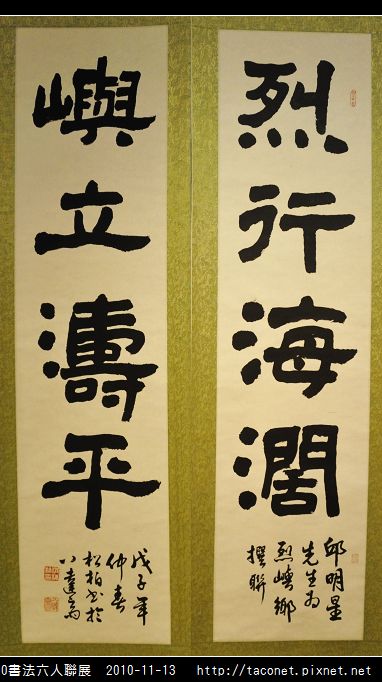 烈行海濶
邱明星
先生為
烈嶼鄉
撰聯
嶼立濤平
戊子年
仲春
松柏書於
八達高
0書法六人聯展 2010-11-13 http://taconet.pixnet.net